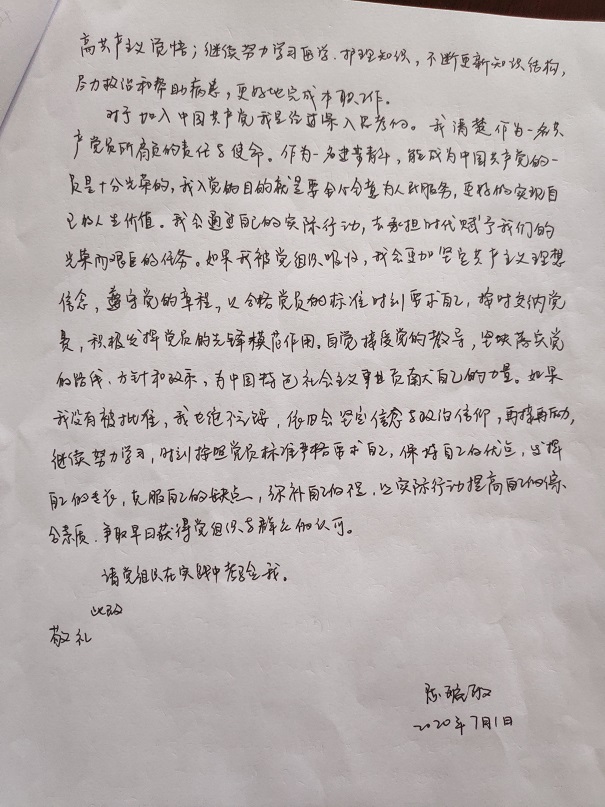 高共产主义觉悟；继续努力学习医学、护理知识，不断更新知识结构，
尽力救治和帮助病患，更好地完成本职工作。
对于加入中国共产党我是经过深入思考的。我清楚作为一名共
产党员所肩负的责任与使命。作为一名进步青年，能成为中国共产党的一
员是十分光荣的，我入党的目的就是要全心全意为人民服务，更好的实现自
己的人生价值。我会通过自己的实际行动，去承担时代赋予我们的
光荣而艰巨的任务。如果我被党组织吸收，我会更加坚定共产主义理想
信念，遵守党的章程，以合格党员的标准时刻要求自己，按时交纳党
费，积极发挥党员的先锋模范作用。自觉接受党的教导，坚决落实党
的路线、方针和政策，为中国特色社会主义事业贡献自己的力量。如果
我没有被批准，我也绝不气馁，依旧会坚定信念与政治信仰，再接再厉，
继续努力学习，时刻按照党员标准严格要求自己，保持自己的优点，发挥
自己的专长，克服自己的缺点，弥补自己的，以实际行动提高自己的综
合素质，争取早日获得党组织与群众的认可。
请党组织在实践中考验我。
此致
敬礼
陈
2020年7月1日